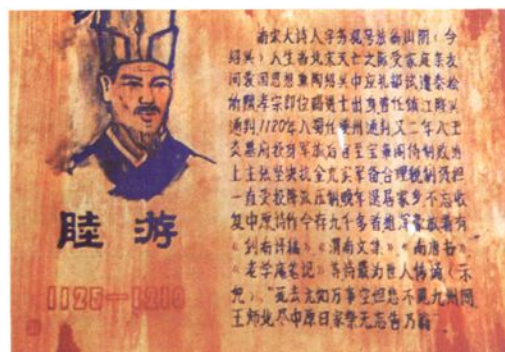 南宋大诗人字务观号放翁山阴(今
绍兴)人生当北宋灭亡之际受家庭亲友
间爱国思想熏陶绍兴中应礼部试遭秦桧
所黜孝宗即位赐进士出身曾任镇江隆兴
通判1120年入蜀任夔州通判又二年入王
炎幕府投身军旅后官至宝章阁待制政治
上主张坚决抗金充实军备合理税制须担
一直受投降派压制晚年退居家乡不忘收
复中原诗作今存九千多首雄浑豪放著有
《剑南诗稿》《渭南文集》《南唐书》
《老学庵笔记》等诗最为世人传诵(示
儿)."死去尤知万事空但悲不见九州同
王师北尽中原日家祭无忘告乃翁"
眭游
1125—1210